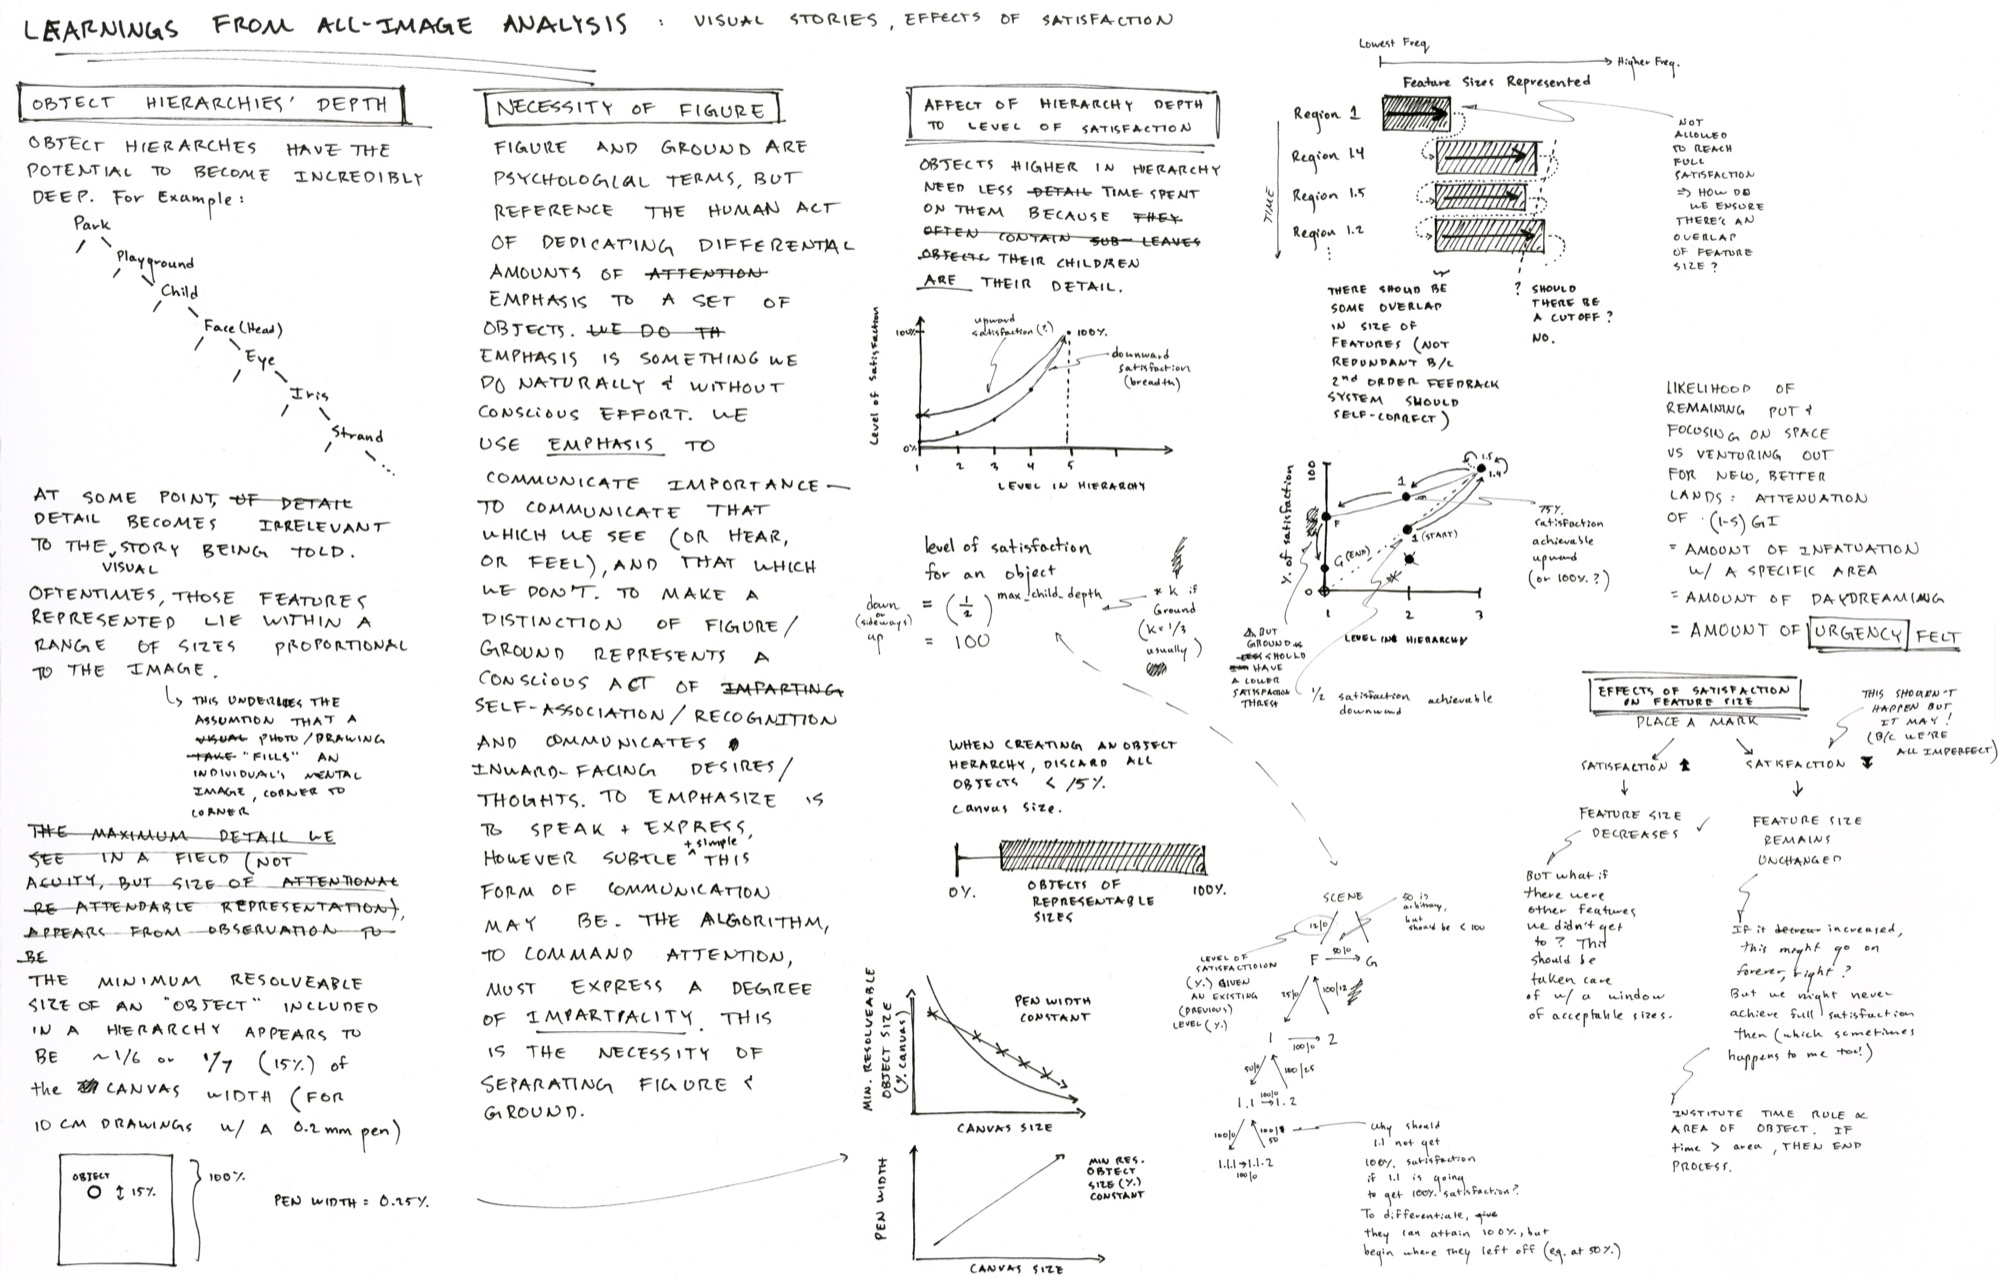 LEARNINGS FROM ALL-IMAGE ANALYSIS : VISUAL STORIES, EFFECTS OF SATISFACTION
OBJECT HIERARCHIES' DEPTH
OBJECT HIERARCHES HAVE THE
POTENTIAL TO BECOME INCREDIBLY
DEEP. For Example:
Park
Playground
Child
Face (Head)
Eye
Iris
Strand
...
AT SOME POINT, OF DETAIL
DETAIL BECOMES IRRELEVANT
TO THE STORY BEING TOLD.
VISUAL
OFTENTIMES, THOSE FEATURES
REPRESENTED LIE WITHIN A
RANGE OF SIZES PROPORTIONAL
TO THE IMAGE.
THIS UNDERLIES THE
ASSUMTION THAT A
VISUAL PHOTO/DRAWING
TAKE "FILLS" AN
INDIVIDUAL'S MENTAL
IMAGE, CORNER TO
CORNER
THE MAXIMUM DETAIL WE
SEE IN A FIELD (NOT
ACUITY, BUT SIZE OF ATTENTIONAL
RE ATTENDABLE REPRESENTATION),
APPEARS FROM OBSERVATION TO
BE
THE MINIMUM RESOLVEABLE
SIZE OF AN "OBJECT" INCLUDED
IN A HIERARCHY APPEARS TO
BE ~1/6 or 1/7 (15%) of
the CANVAS WIDTH (FOR
10 CM DRAWINGS W/ A 0.2 mm pen)
OBJECT
15%
100%
PEN WIDTH = 0.25%.
NECESSITY OF FIGURE
FIGURE AND GROUND ARE
PSYCHOLOGICAL TERMS, BUT
REFERENCE THE HUMAN ACT
OF DEDICATING DIFFERENTIAL
AMOUNTS OF ATTENTION
EMPHASIS TO A SET OF
OBJECTS. WE DO TH
EMPHASIS IS SOMETHING WE
DO NATURALLY & WITHOUT
CONSCIOUS EFFORT. WE
USE EMPHASIS TO
COMMUNICATE IMPORTANCE —
TO COMMUNICATE THAT
WHICH WE SEE (OR HEAR,
OR FEEL), AND THAT WHICH
WE DON'T. TO MAKE A
DISTINCTION OF FIGURE/
GROUND REPRESENTS A
CONSCIOUS ACT OF IMPARTING
SELF-ASSOCIATION/RECOGNITION
AND COMMUNICATES
INWARD-FACING DESIRES/
THOGHTS. TO EMPHASIZE IS
TO SPEAK + EXPRESS,
+ simple
HOWEVER SUBTLE ^ THIS
FORM OF COMMUNICATION
MAY BE. THE ALGORITHM,
TO COMMAND ATTENTION,
MUST EXPRESS A DEGREE
OF IMPARTIALITY. THIS
IS THE NECESSITY OF
SEPARATING FIGURE &
GROUND.
AFFECT OF HIERARCHY DEPTH
TO LEVEL OF SATISFACTION
OBJECTS HIGHER IN HIERARCHY
NEED LESS DETAIL TIME SPENT
ON THEM BECAUSE THEY
OFTEN CONTAIN SUB- LEAVES
OBJECTS THEIR CHILDREN
ARE THEIR DETAIL.
Level of Satisfaction
100%
0%
upward
satisfaction (?)
100%.
downward
satisfaction
(breadth)
1 2 3 4 5
LEVEL IN HIERARCHY
level of satisfaction
for an object
down = (1/2) max_child_depth
or
(sideways)
up = 100
* k if
Ground
(k = 1/3
usually)
WHEN CREATING AN OBJECT
HERARCHY, DISCARD ALL
OBJECTS < 15%.
Canvas Size.
0%. 100%.
OBJECTS OF
REPRESENTABLE
SIZES
MIN. RESOLVEABLE
OBJECT SIZE
(% CANVAS)
PEN WIDTH
CONSTANT
CANVAS SIZE
PEN WIDTH
MIN RES.
OBJECT
SIZE (%)
CONSTANT
CANVAS SIZE
Lowest Freq
Higher Freq.
Feature Sizes Represented
TIME
Region 1
Region 1.4
Region 1.5
Region 1.2
⋮
NOT
ALLOWED
TO REACH
FULL
SATISFACTION
⇒ HOW DO
WE ENSURE
THERE'S AN
OVERLAP
OF FEATURE
SIZE?
THERE SHOULD BE
SOME OVERLAP
IN SIZE OF
FEATURES (NOT
REDUNDANT B/C
2nd ORDER FEEDBACK
SYSTEM SHOULD
SELF-CORRECT)
? SHOULD
THERE BE
A CUTOFF?
NO.
% of satisfaction
100
0
F
G (END)
1
1 (START)
1.5
1.4
1 2 3
LEVEL IN HIERARCHY
75%.
satisfaction
achievable
upward
(or 100%?)
BUT
GROUND
SHOULD
HAVE
A LOWER
SATISFACTION
THRESH
1/2 satisfaction achievable
downward
LIKELIHOOD OF
REMAINING PUT &
FOCUSING ON SPACE
VS VENTURING OUT
FOR NEW, BETTER
LANDS: ATTENUATION
OF (1-S) GI
= AMOUNT OF INFATUATION
W/ A SPECIFIC AREA
= AMOUNT OF DAYDREAMING
= AMOUNT OF URGENCY FELT
EFFECTS OF SATISFACTION
ON FEATURE SIZE
PLACE A MARK
SATISFACTION ↑
SATISFACTION ↓
THIS SHOULDN'T
HAPPEN BUT
IT MAY!
(B/C WE'RE
ALL IMPERFECT)
FEATURE SIZE
DECREASES ✓
FEATURE SIZE
REMAINS
UNCHANGED
BUT what if
there were
other features
we didn't get
to? This
should be
taken care
of w/ a window
of acceptable sizes.
If it decrease increased,
this might go on
forever, right?
But we might never
achieve full satisfaction
then (which sometimes
happens to me too!)
INSTITUTE TIME RULE ∝
AREA OF OBJECT. IF
time > area, THEN END
PROCESS.
SCENE
12/0
50/0
F → G
50 is
arbitrary,
but
should be < 100
LEVEL OF
SATISFACTIOION
(%) GIVEN
AN EXISTING
(PREVIOUS)
LEVEL (%).
25/0
100/12
1 → 2
100/0
50/0
100/25
1.1 → 1.2
100/0
100/0
100/
50
1.1.1 → 1.1.2
100/0
Why should
1.1 not get
100% satisfaction
if 1.1 is going
to get 100% satisfaction?
To differentiate, give
they can attain 100%, but
begin where they left off (eg. at 50%)